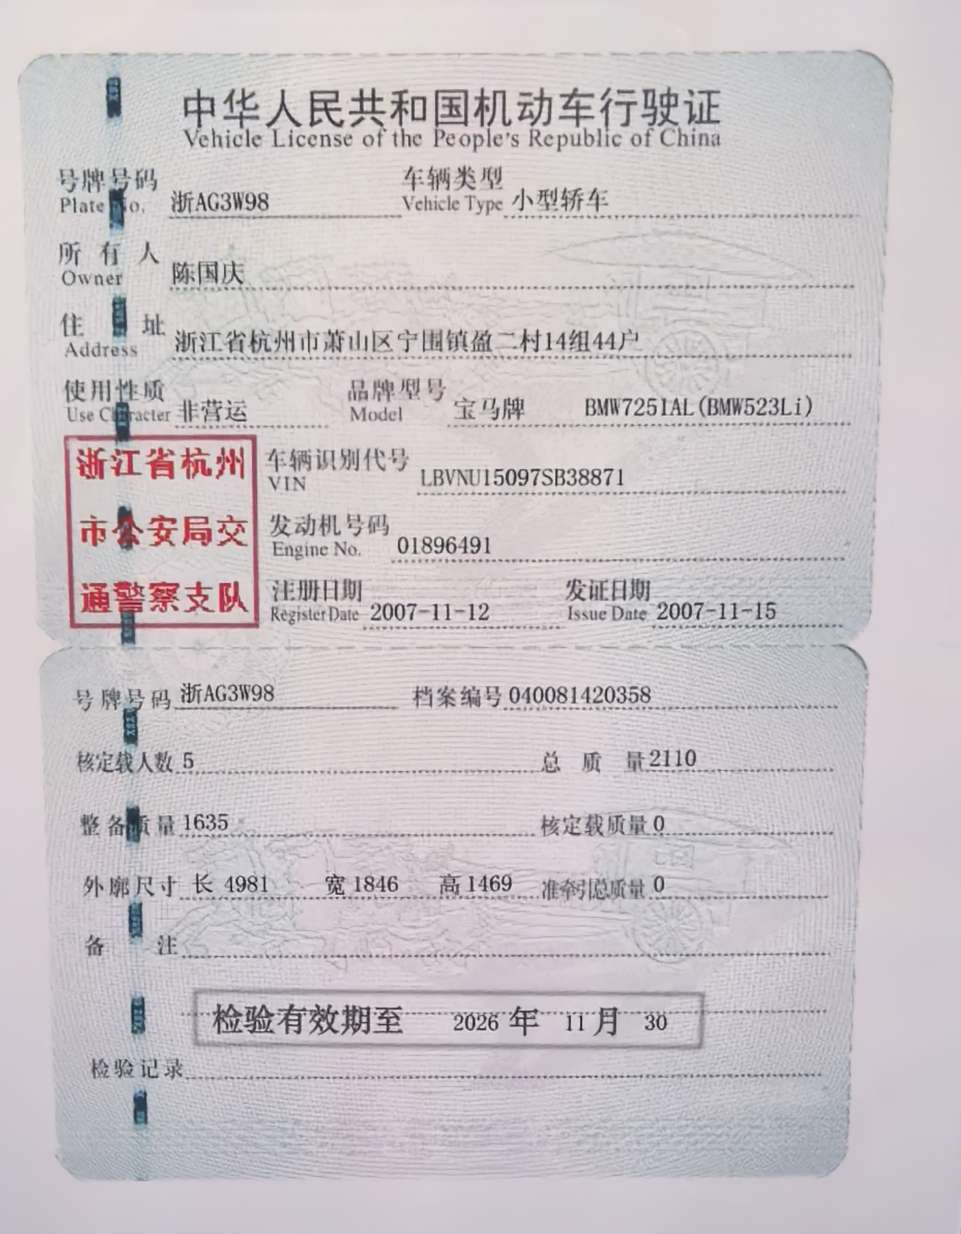 中华人民共和国机动车行驶证
Vehicle License of the People's Republic of China
号牌号码 Plate No. 浙AG3W98 车辆类型 Vehicle Type 小型轿车
所有人 Owner 陈国庆
住址 Address 浙江省杭州市萧山区宁围镇盈二村14组44户
使用性质 Use Character 非营运 品牌型号 Model 宝马牌 BMW7251AL(BMW523Li)
浙江省杭州
市公安局交
通警察支队
车辆识别代号 VIN LBVNU15097SB38871
发动机号码 Engine No. 01896491
注册日期 Register Date 2007-11-12 发证日期 Issue Date 2007-11-15
号牌号码 浙AG3W98 档案编号 040081420358
核定载人数 5 总质量 2110
整备质量 1635 核定载质量 0
外廓尺寸 长 4981 宽 1846 高 1469 准牵引总质量 0
备注
检验有效期至 2026 年 11 月 30
检验记录